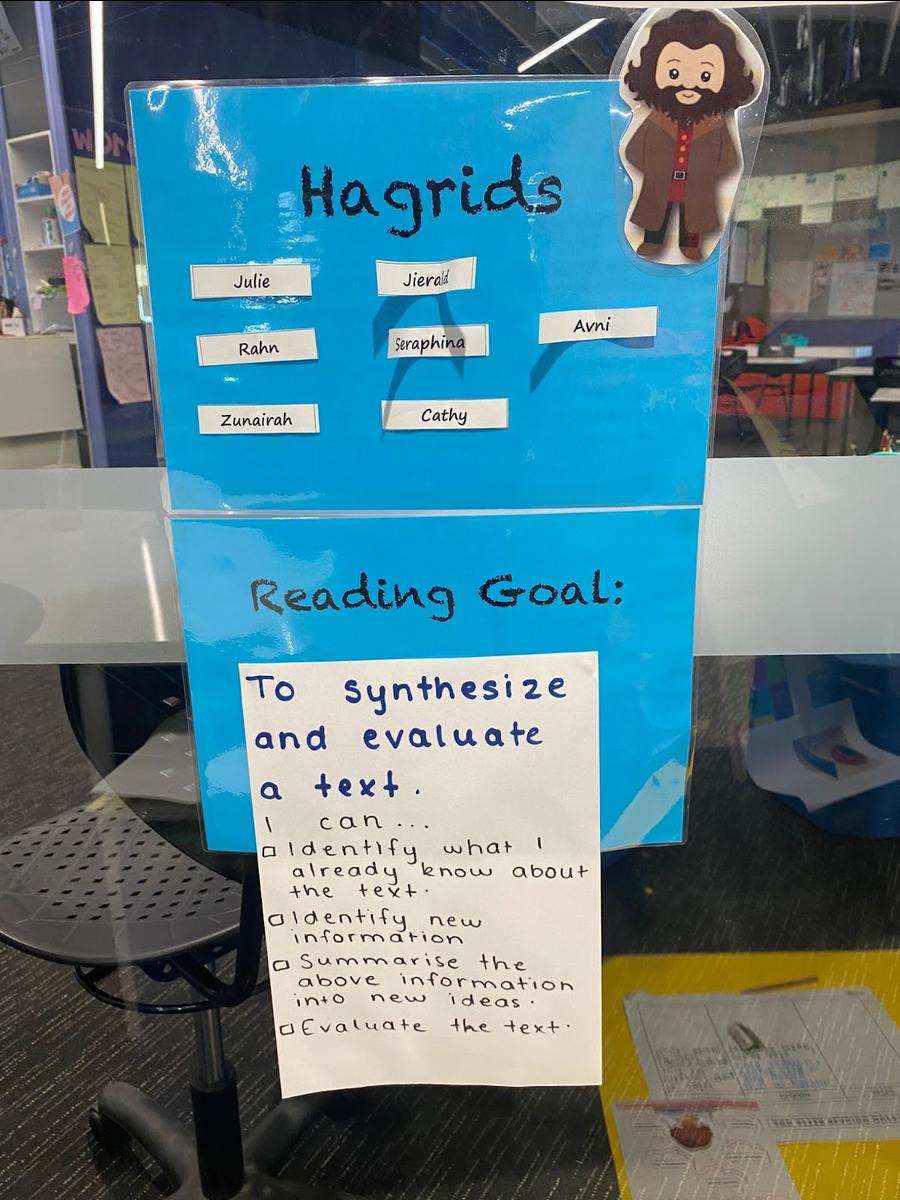 Hagrids
Julie
Jierald
Avni
Rahn
Seraphina
Zunairah
Cathy
Reading Goal:
To synthesize
and evaluate
a text.
I can...
Identify what I
already know about
the text.
Identify new
information
Summarise the
above information
into new ideas.
Evaluate the text.